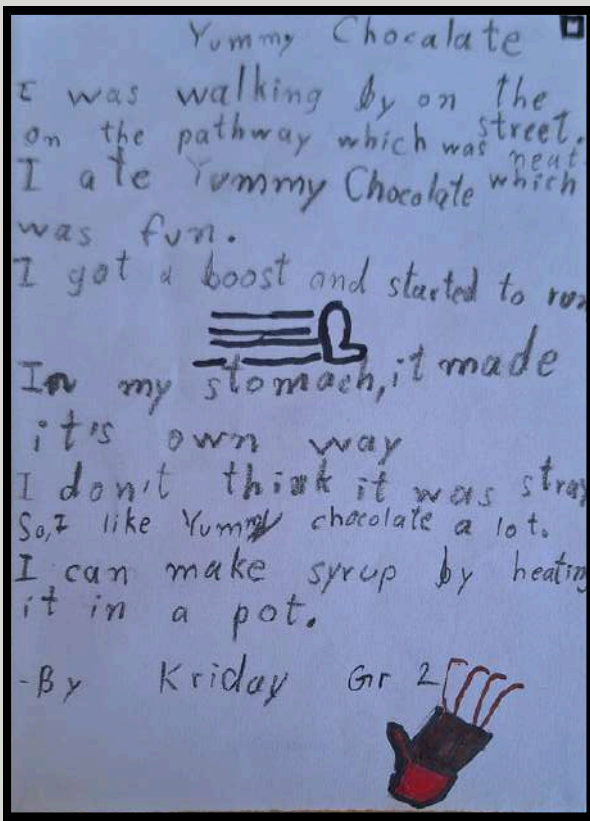 Yummy Chocalate
I was walking by on the street.
on the pathway which was neat
I ate Yummy Chocolate which
was fun.
I got a boost and started to run
In my stomach, it made
it's own way
I don't think it was stray
So, I like Yummy chocolate a lot.
I can make syrup by heating
it in a pot.
-By Kriday Gr 2